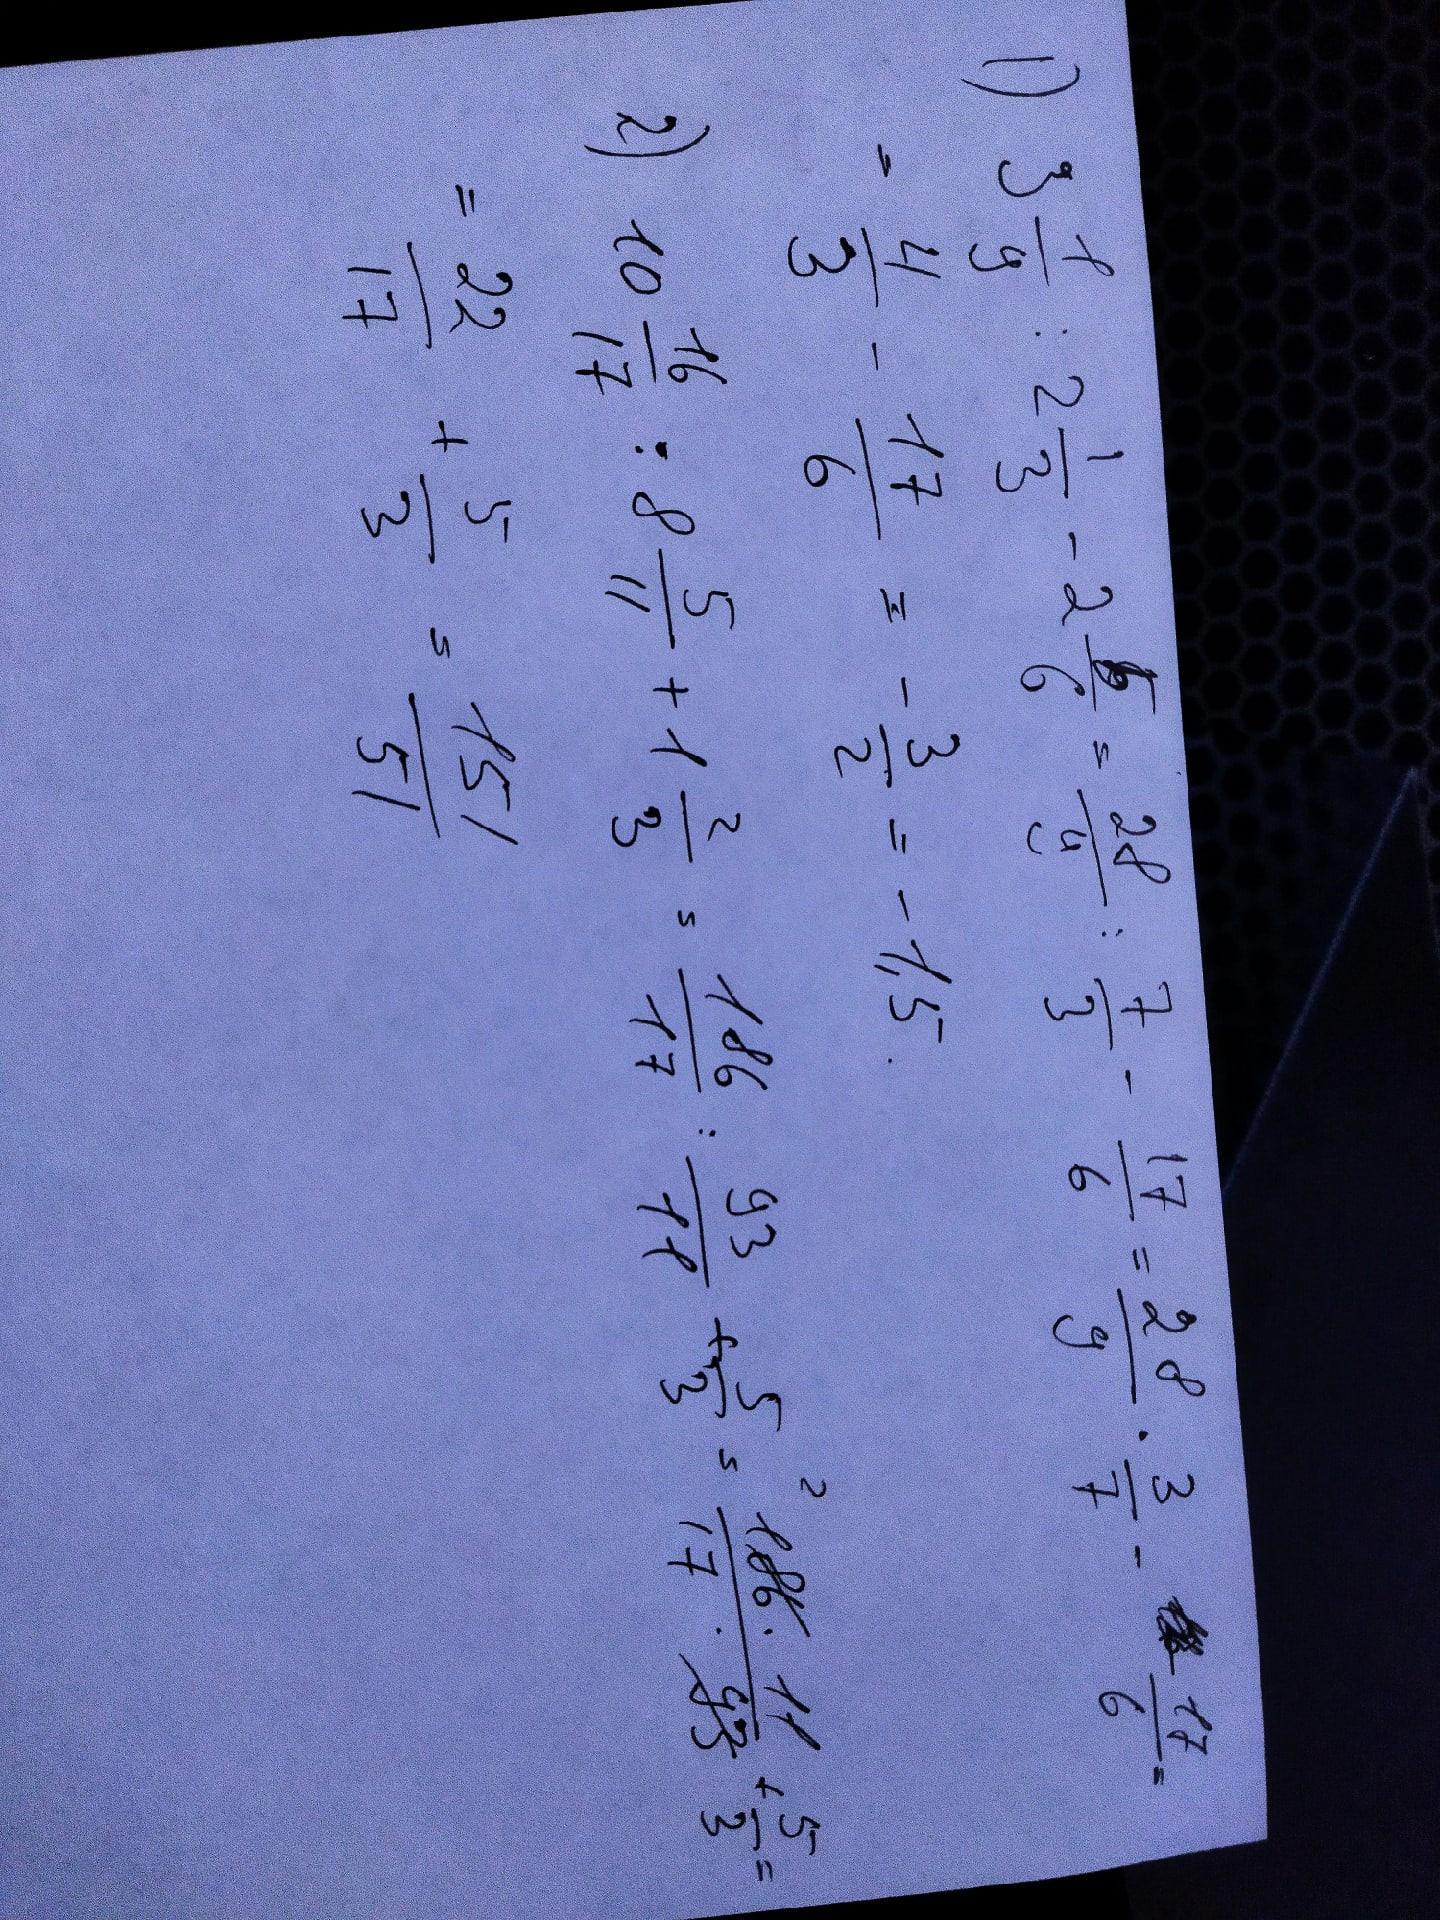 1) 3 1/9 : 2 1/3 - 2 5/6 = 28/9 : 7/3 - 17/6 = 28/9 · 3/7 - 17/6 =
= 4/3 - 17/6 = - 3/2 = - 1,5.
2) 10 16/17 : 8 5/11 + 1 2/3 = 186/17 : 93/11 + 5/3 = 2 186 · 11 / 17 · 93 + 5/3 =
= 22/17 + 5/3 = 151/51